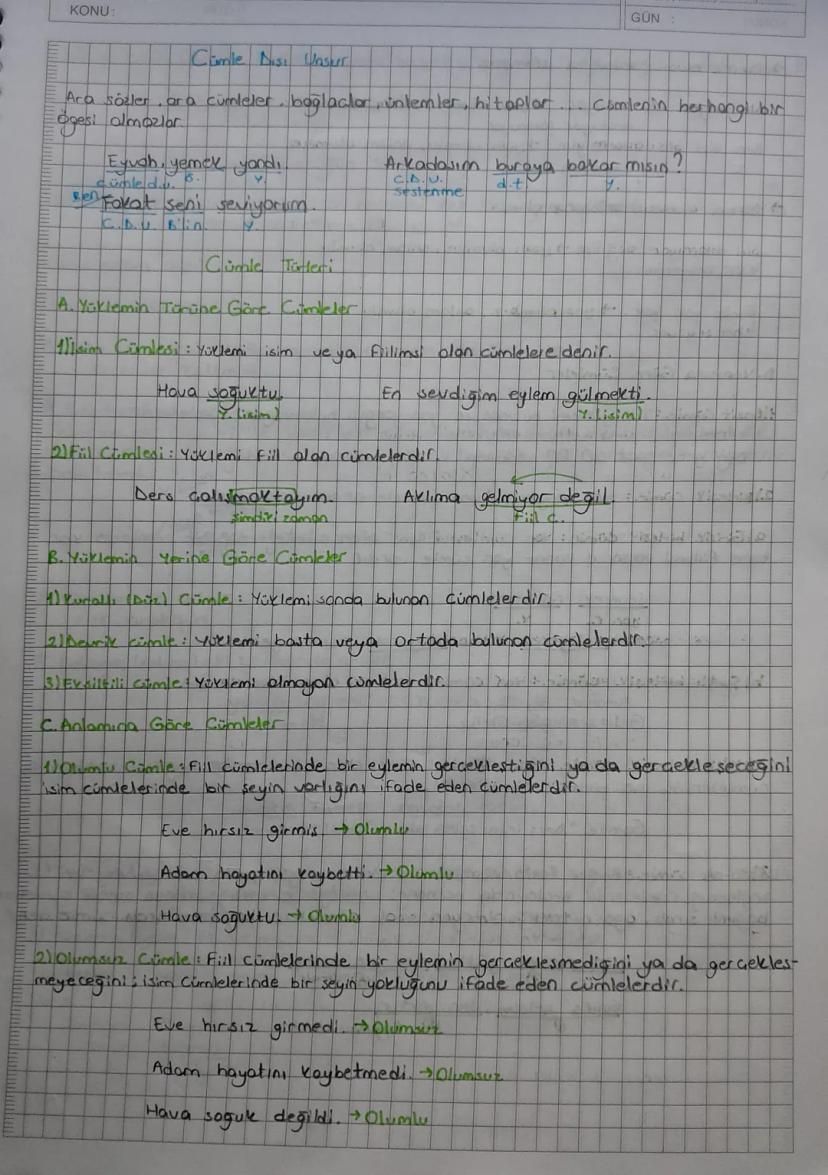 KONU:
GÜN :
Cümle Dışı Unsur
Ara sözler, ara cümleler, bağlaçlar, ünlemler, hitaplar... Cümlenin herhangi bir
ögesi olmazlar.
Eyvah, yemek yandı.
cümle d.u. B. Y.
Arkadaşım buraya bakar mısın?
C.D.U. d.t y.
seslenme
Ben Fakat seni seviyorum.
C.D.U. B'lin. Y.
Cümle Türleri
A. Yüklemin Türüne Göre Cümleler
1) İsim Cümlesi: Yüklemi isim veya fiilimsi olan cümlelere denir.
Hava soğuktu. En sevdiğim eylem gülmekti.
Y. (isim) Y. (isim)
2) Fiil Cümlesi: Yüklemi fiil olan cümlelerdir.
Ders çalışmaktayım. Aklıma gelmiyor değil.
şimdiki zaman Fiil c.
B. Yüklemin Yerine Göre Cümleler
1) Kurallı (Düz) Cümle: Yüklemi sonda bulunan cümlelerdir.
2) Devrik cümle: Yüklemi başta veya ortada bulunan cümlelerdir.
3) Eksiltili cümle: Yüklemi olmayan cümlelerdir.
C. Anlamına Göre Cümleler
1) Olumlu Cümle: Fiil cümlelerinde bir eylemin gerçekleştiğini ya da gerçekleşeceğini
isim cümlelerinde bir şeyin varlığını ifade eden cümlelerdir.
Eve hırsız girmiş → Olumlu
Adam hayatını kaybetti. → Olumlu
Hava soğuktu. → Olumlu
2) Olumsuz Cümle: Fiil cümlelerinde bir eylemin gerçekleşmediğini ya da gerçekleş-
meyeceğini; isim cümlelerinde bir şeyin yokluğunu ifade eden cümlelerdir.
Eve hırsız girmedi. → Olumsuz
Adam hayatını kaybetmedi. → Olumsuz
Hava soğuk değildi. → Olumlu